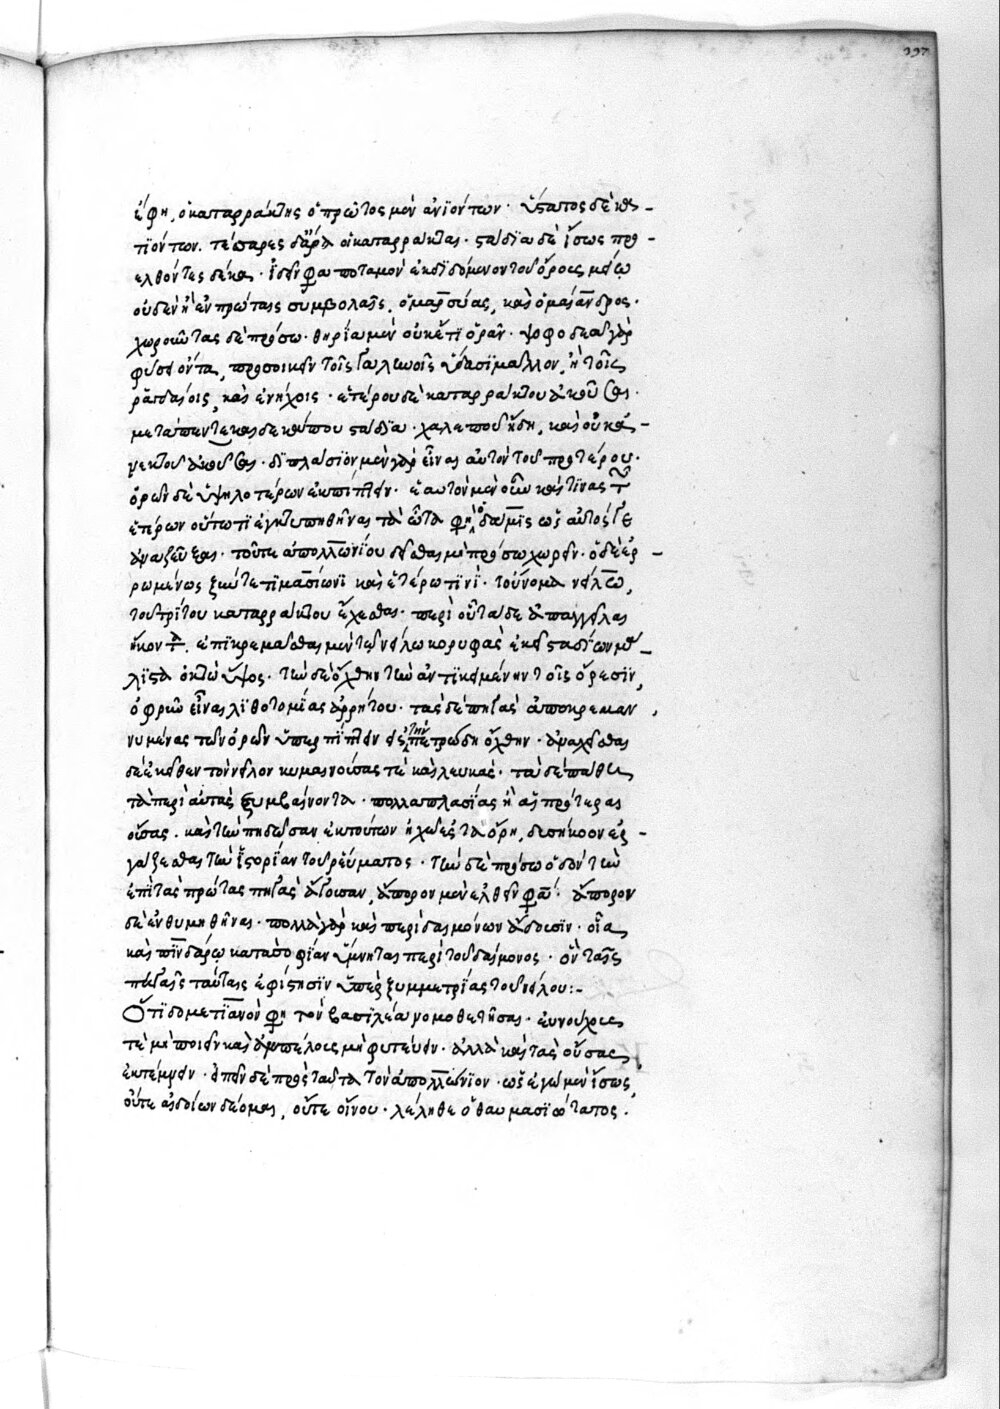 397
ἔφη, ὁ καταρράκτης ὁ πρῶτος μὲν ἀνιόντων· ὕστατος δὲ κα-
τϊόντων. τέσσαρες δ' ἄρα οἱ καταρράκται· στάδϊα δὲ ἴσως προ-
ελθόντες δέκα· ἰδεῖν φασι ποταμὸν ἐκδϊδόμενον τοῦ ὄρους μείω
οὐδὲν ἢ ἐν πρώταις συμβολαῖς, ὁ μαρσύας, καὶ ὁ μαίανδρος·
χωροῦντας δὲ πρόσω· θηρία μὲν οὐκέτι ὁρᾶν· ψοφοδεᾶ γὰρ
φύσει ὄντα, προσοικεῖν τοῖς γαληνοῖς ὕδασϊ μᾶλλον, ἢ τοῖς
ραγδαίοις, καὶ ἐνήχοις· ἑτέρου δὲ καταρράκτου ἀκοῦσαι·
μετὰ πεντεκαίδεκά που στάδϊα· χαλεποῦ ἤδη, καὶ οὐκ ἀ-
νεκτοῦ ἀκοῦσαι· διπλάσϊον μὲν γὰρ εἶναι αὐτὸν τοῦ προτέρου·
ὀρῶν δὲ ὑψηλοτέρων ἐκπίπτειν· ἑαυτοῦ μὲν οὖν καί τϊνας τῶν
ἑτέρων οὕτω τι ἐγκτυπηθῆναι τὰ ὦτα φησὶν ὁ δάμις ὡς αὐτός τε
ἀναζεῦξαι· τοῦ τε ἀπολλωνίου δεῖσθαι μὴ πρόσω χωρεῖν· ὁ δὲ ἐρ-
ρωμένως ξύν τε τϊμασίωνι καὶ ἑτέρω τϊνὶ· τοὔνομα νείλω,
τοῦ τρίτου καταρράκτου ἔχεσθαι· περὶ οὗ τάδε ἀπαγγεῖλαι
ἥκοντα. ἐπϊκρέμασθαι μὲν τῶ νείλω κορυφὰς ἐκεῖ σταδίων μά-
λϊστα ὀκτὼ ὕψος· τὴν δὲ ὄχθην τὴν ἀντϊκειμένην τοῖς ὄρεσϊν,
ὀφρὺν εἶναι λϊθοτομίας ἀρρήτου· τὰς δὲ πηγὰς ἀποκρεμαν-
νυμένας τῶν ὀρῶν ὑπερπϊπτειν ἐς τὴν πετρώδη ὄχθην· ἀναχεῖσθαι
δὲ ἐκεῖθεν τὸν νεῖλον κυμαινούσας τὲ καὶ λευκάς· τὰ δὲ πάθη
τὰ περὶ αὐτὰς ξυμβαίνοντα· πολλαπλασίας ἢ αἱ πρότεραι
οὔσας. καὶ τὴν πηδῶσαν ἐκ τούτων ἠχὼ ἐς τὰ ὄρη, δυσήκοον ἐρ-
γάζεσθαι τὴν ἱστορίαν τοῦ ρεύματος· τὴν δὲ πρόσω ὁδὸν τὴν
ἐπὶ τὰς πρώτας πηγὰς ἄγουσαν, ἄπορον μὲν ἐλθεῖν φασὶ· ἄπορον
δὲ ἐνθυμηθῆναι· πολλὰ γὰρ καὶ περὶ δαιμόνων ᾄδουσϊν· οἷα
καὶ πϊνδάρω κατὰ σοφίαν ὕμνηται περὶ τοῦ δαίμονος· ὃν ταῖς
πηγαῖς ταύταις ἐφίστησϊν ὑπὲρ ξυμμετρίας τοῦ νείλου:-
Ὅτϊ δομετϊανὸν φησὶ τὸν βασιλέα νομοθετῆσαι· εὐνούχους
τὲ μὴ ποιεῖν καὶ ἀμπέλους μὴ φυτεύειν· ἀλλὰ καὶ τὰς οὔσας,
ἐκτέμνειν· εἰπεῖν δὲ πρὸς ταῦτα τὸν ἀπολλώνϊον· ὡς ἐγὼ μὲν ἴσως,
οὔτε αἰδοίων δέομαι, οὔτε οἴνου· λέληθε ὁ θαυμασϊώτατος.